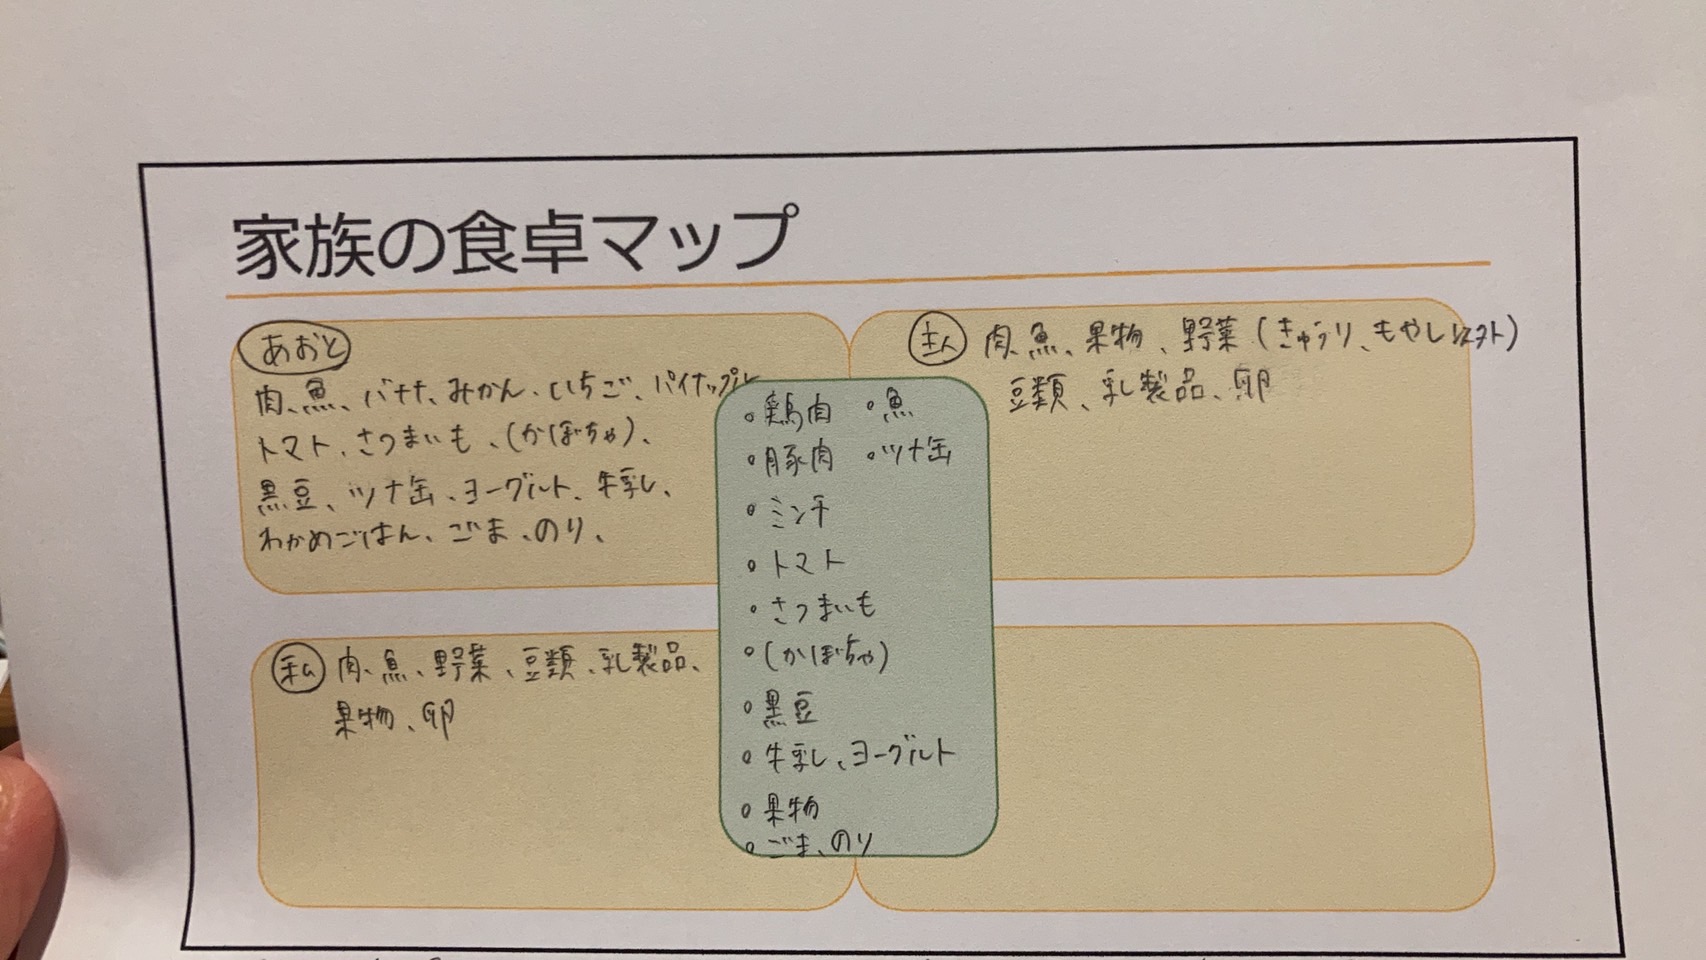 家族の食卓マップ
あおと
肉、魚、バナナ、みかん、いちご、パイナップル
トマト、さつまいも、(かぼちゃ)、
黒豆、ツナ缶、ヨーグルト、牛乳、
わかめごはん、ごま、のり、
主人 肉、魚、果物、野菜(きゅうり、もやし以外)
豆類、乳製品、卵
・鶏肉 ・魚
・豚肉 ・ツナ缶
・ミンチ
・トマト
・さつまいも
・(かぼちゃ)
・黒豆
・牛乳、ヨーグルト
・果物
・ごま、のり
私 肉、魚、野菜、豆類、乳製品、
果物、卵